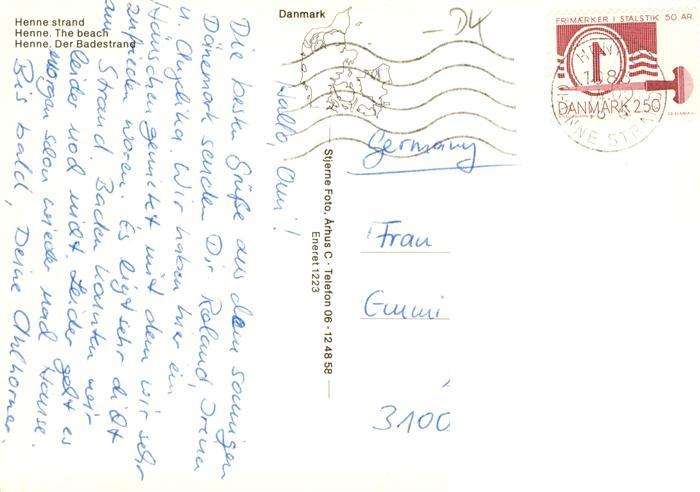 Henne strand
Henne. The beach
Henne. Der Badestrand
Danmark
DK
FRIMÆRKER I STÅLSTIK 50 ÅR
1
DANMARK 250
HENNE STRAND
Stjerne Foto, Århus C · Telefon 06 - 12 48 58
Eneret 1223
Hallo, Omi!
Die besten Grüße aus dem sonnigen
Dänemark senden Dir Roland, Irena
u. Angelika. Wir haben hier ein
Häuschen gemietet mit dem wir sehr
zufrieden waren. Es liegt sehr dicht
am Strand. Baden konnten wir
leider noch nicht. Leider geht es
morgen schon wieder nach Hause.
Bis bald, Deine
Germany
Frau
Emmi
3100